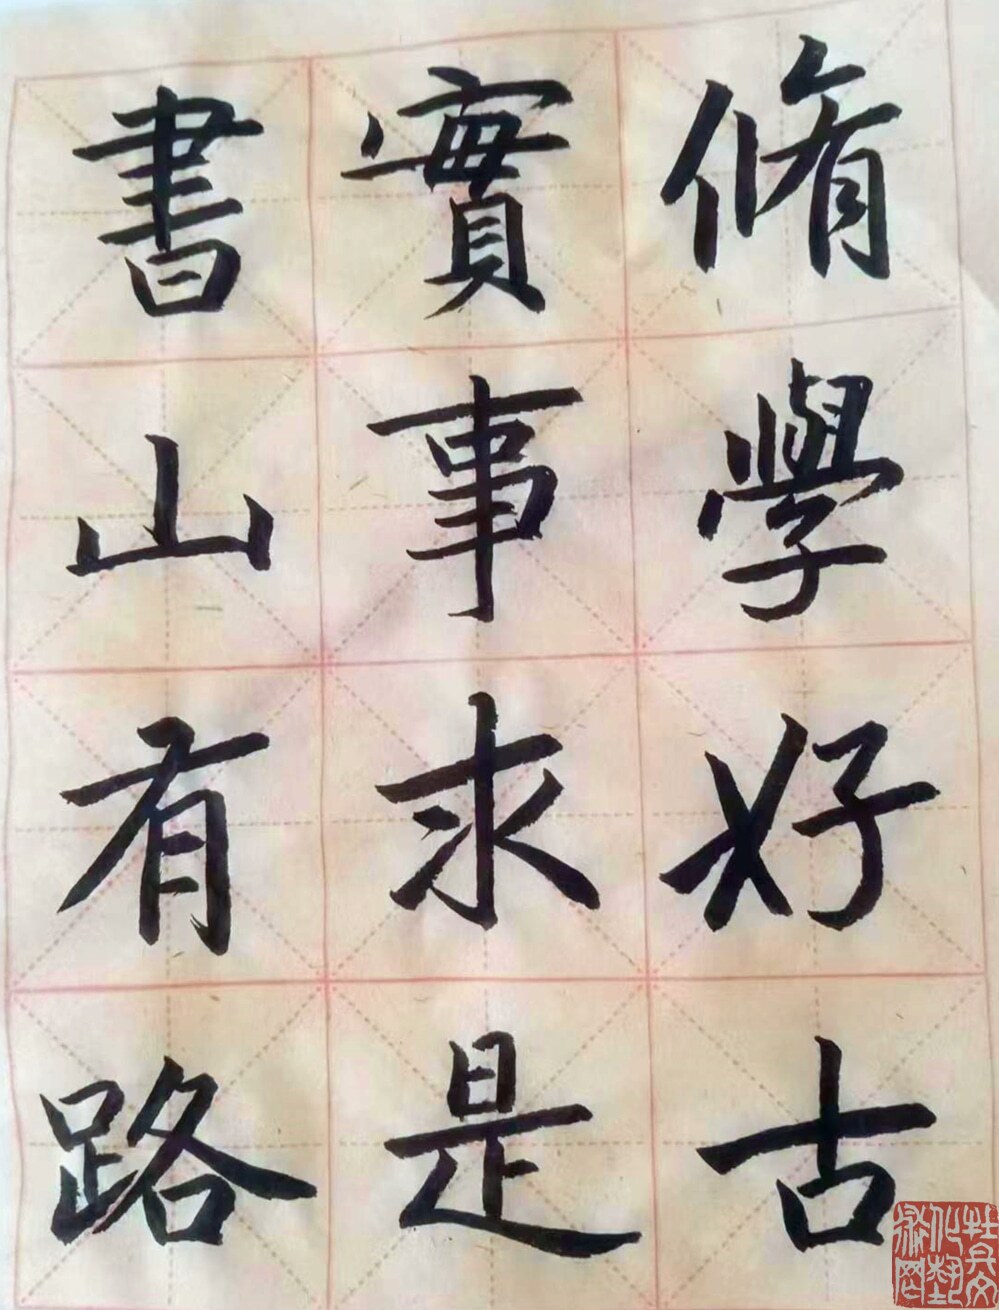 脩學好古
實事求是
書山有路